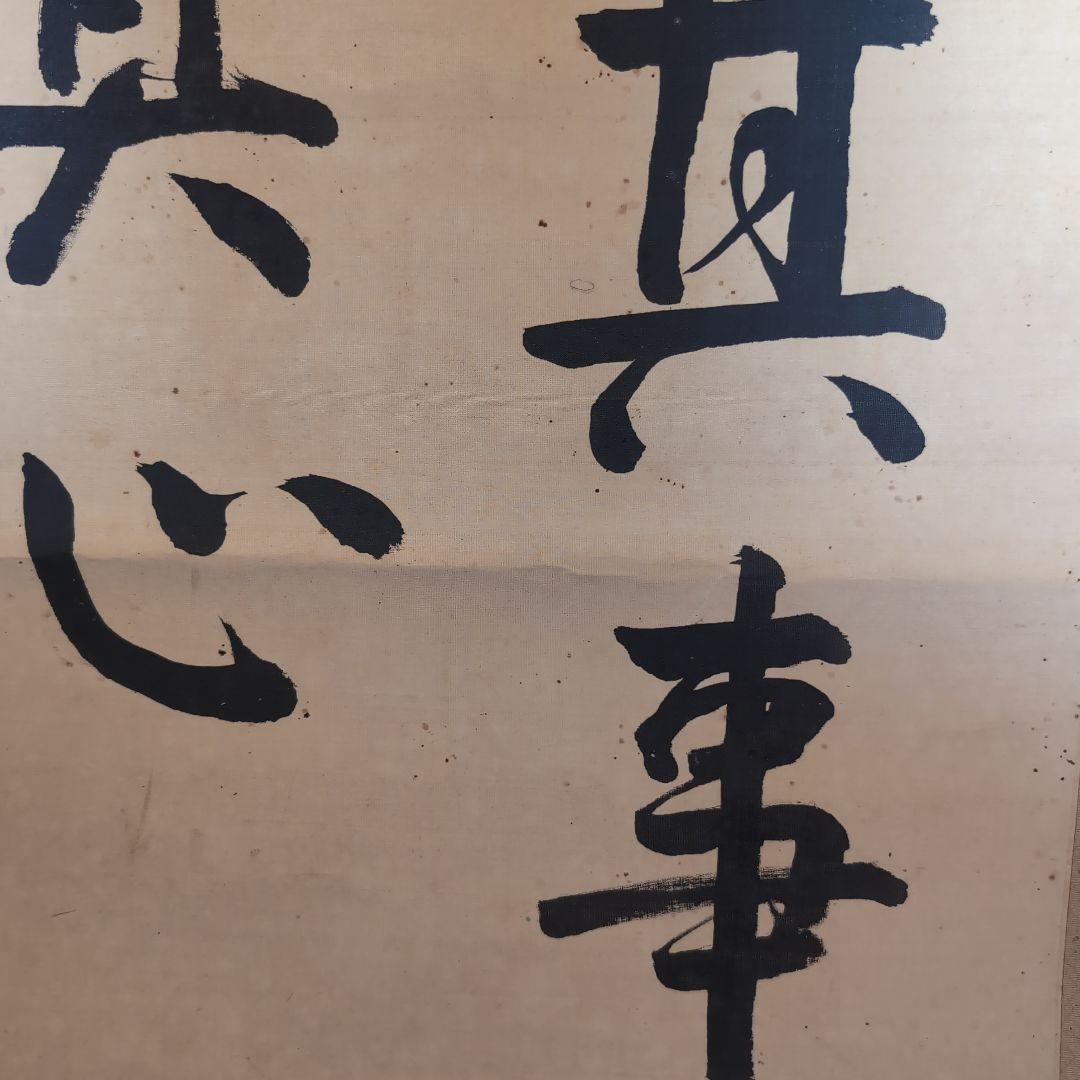 其事
其心